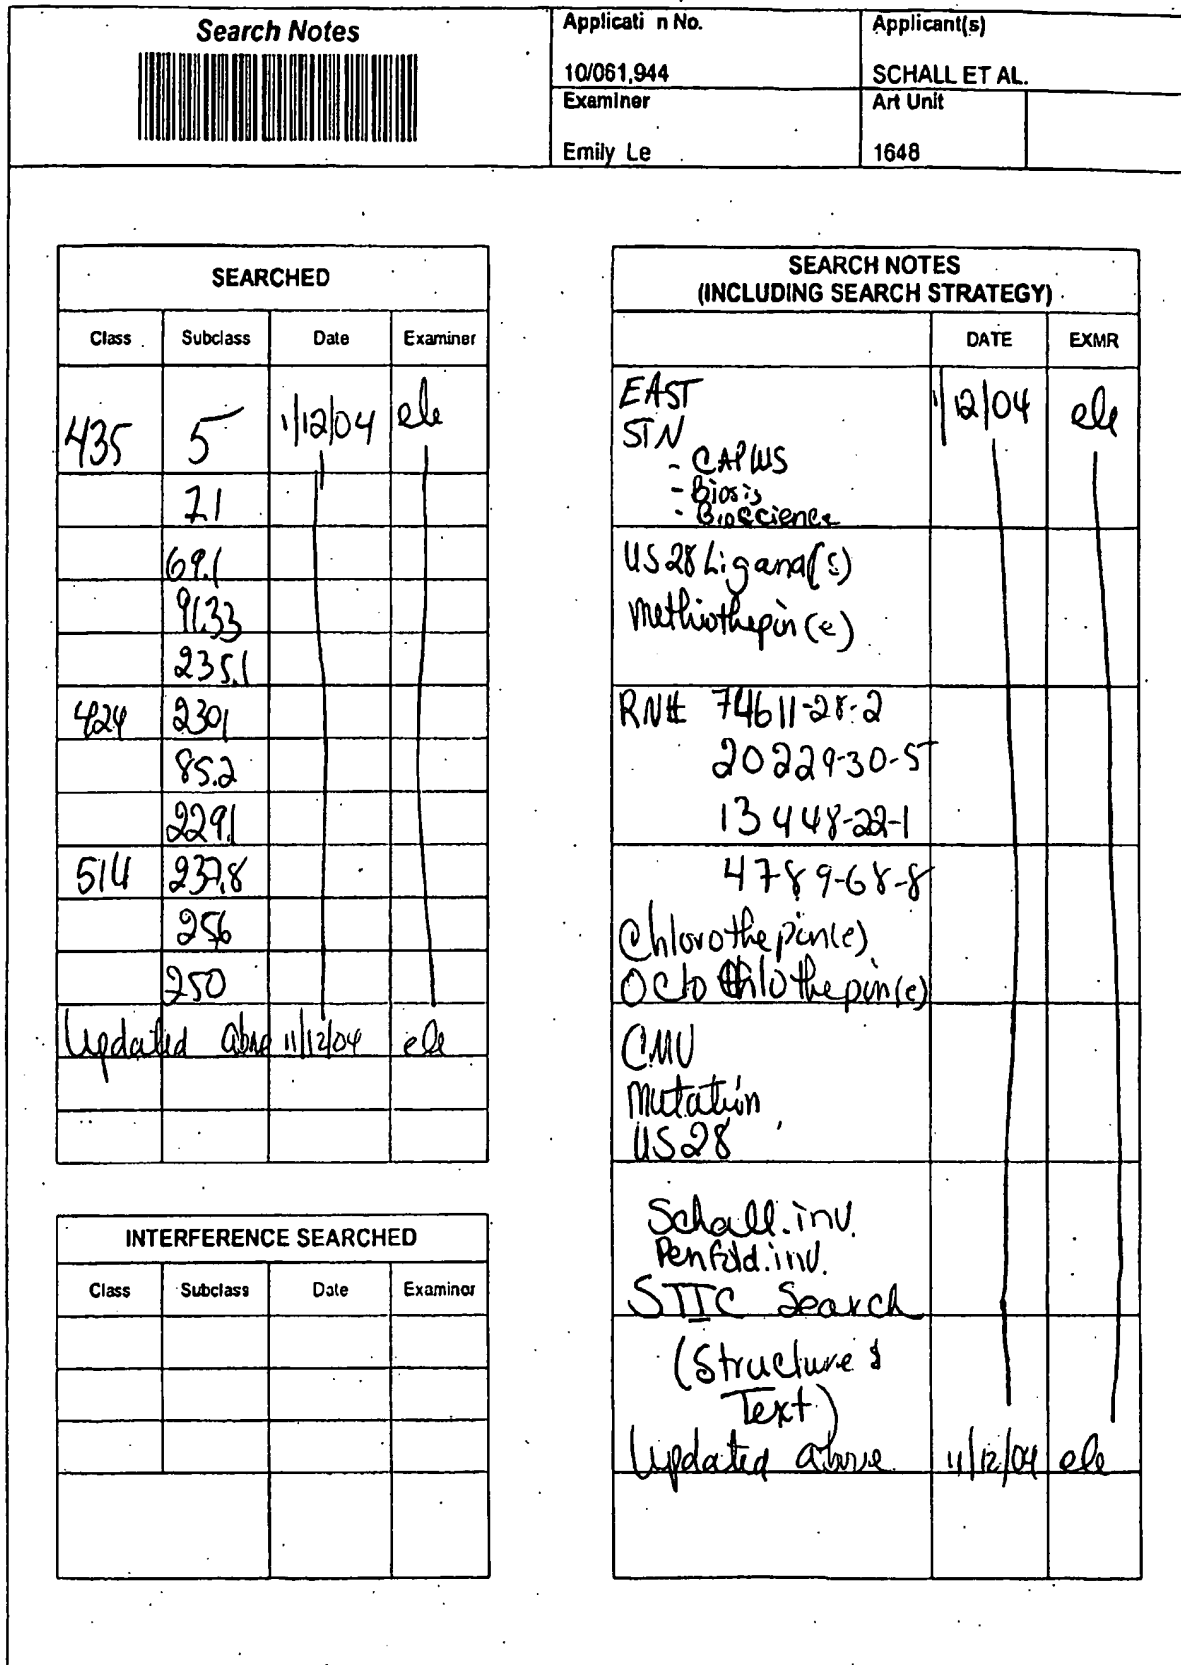 Search Notes
Applicati n No.
10/061,944
Applicant(s)
SCHALL ET AL.
Examiner
Emily Le
Art Unit
1648
SEARCHED
Class Subclass Date Examiner
435 5 1/12/04 ele
7.1
69.1
91.33
235.1
424 230.1
85.2
229.1
514 237.8
256
250
Updated above 11/12/04 ele
INTERFERENCE SEARCHED
Class Subclass Date Examiner
SEARCH NOTES
(INCLUDING SEARCH STRATEGY)
DATE EXMR
EAST 1/12/04 ele
STN
- CAPLUS
- Biosis
- Bioscience
US28 Ligand(s)
Methiothepin(e)
RN# 74611-28-2
20229-30-5
13448-22-1
4789-68-8
Chlorothepin(e)
Octochlothepin(e)
CMV
Mutation
US28
Schall.inv.
Penfold.inv.
STIC Search
(Structure &
Text)
Updated above 11/12/04 ele